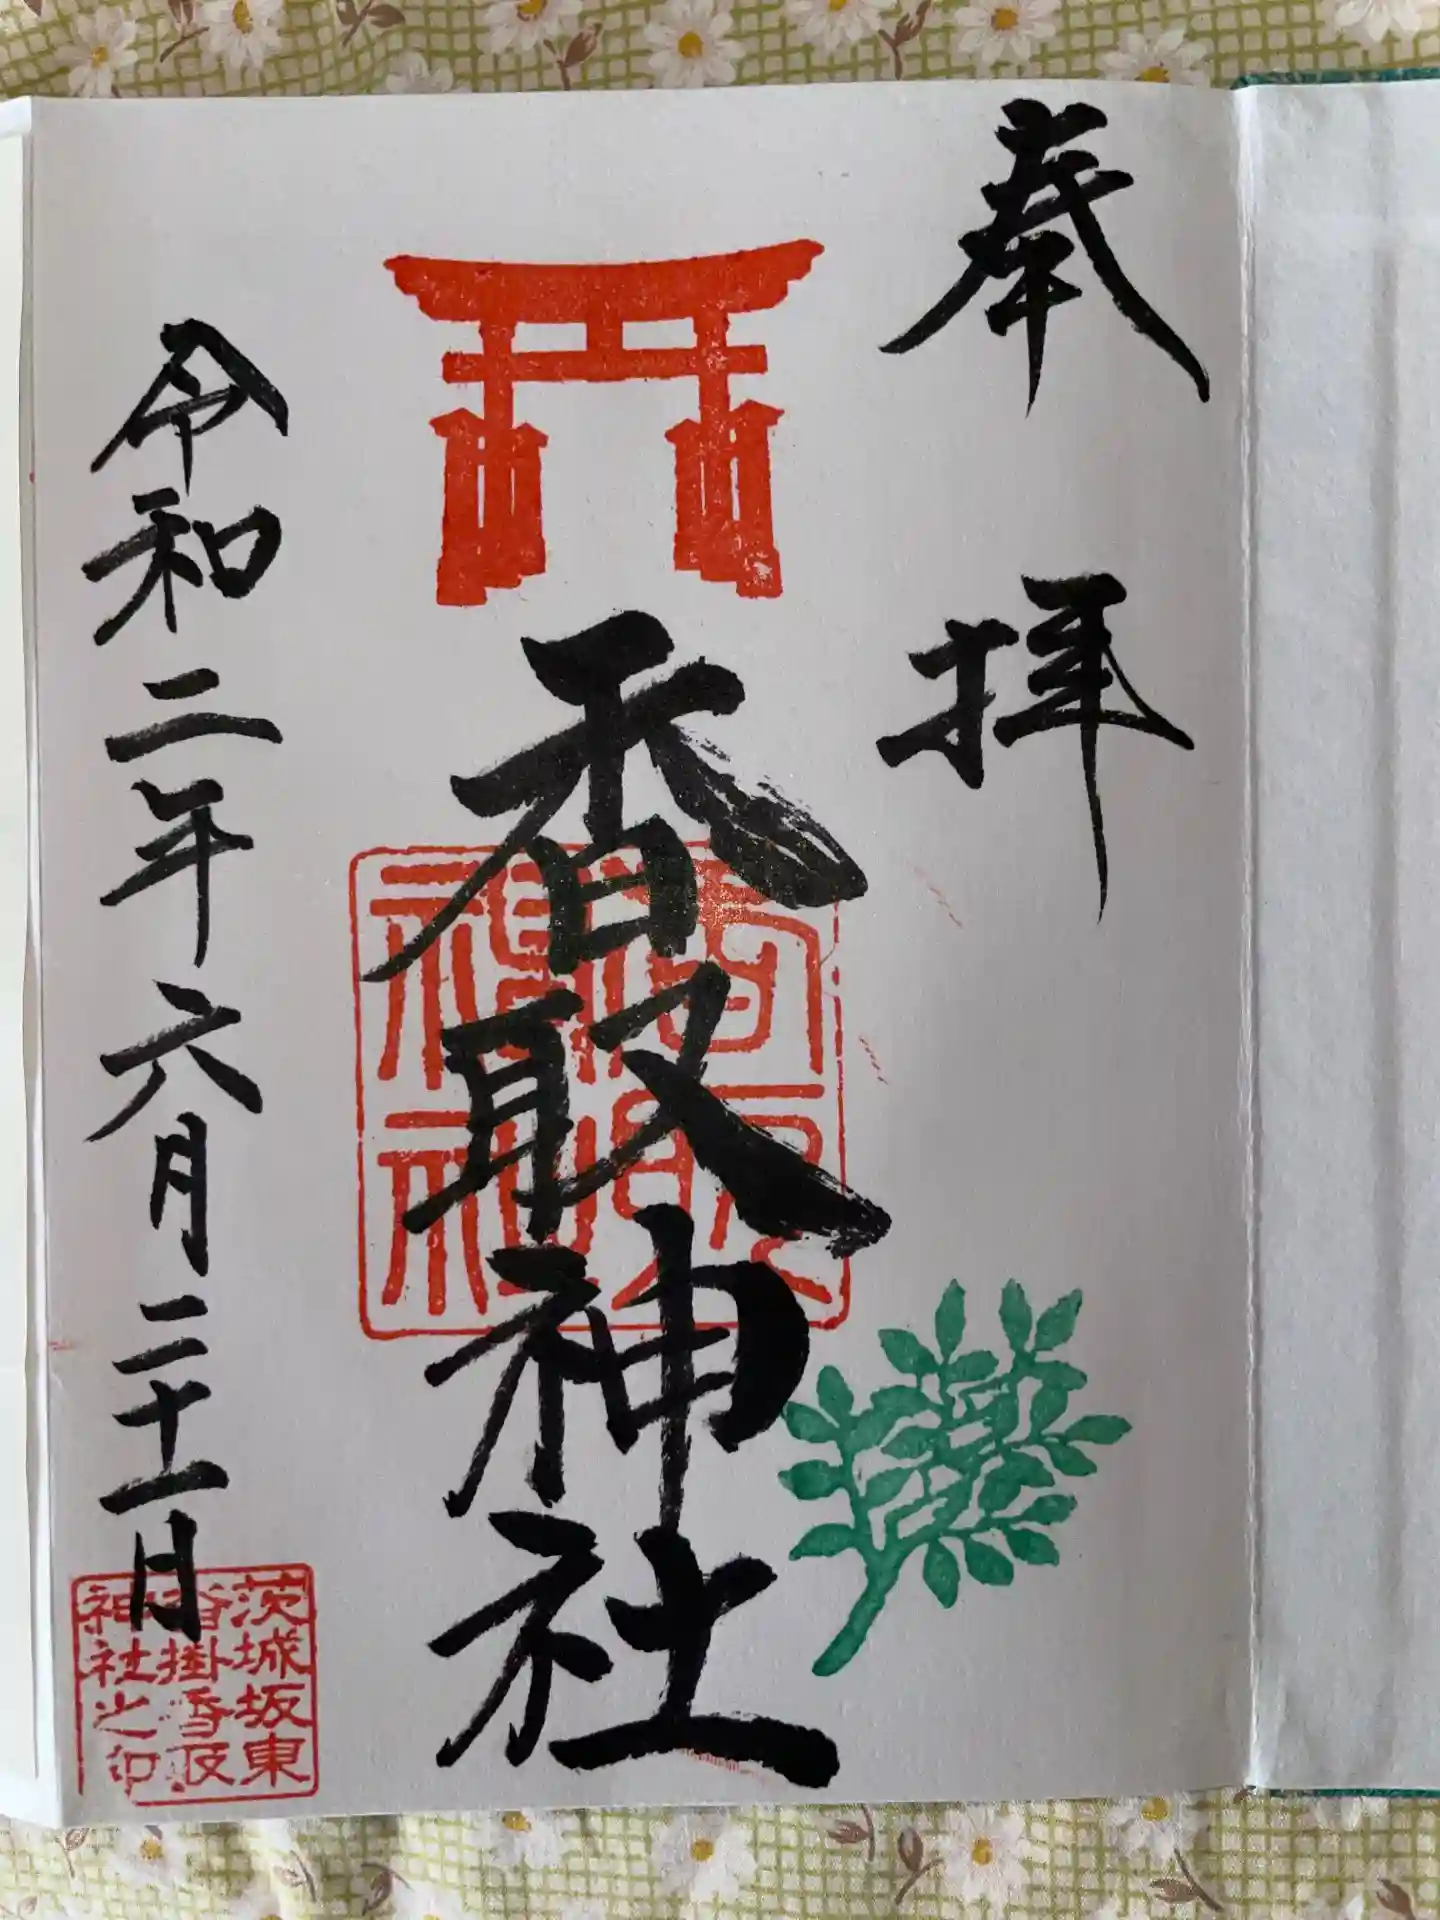 奉拝
香取神社
令和二年六月二十一日
茨城坂東
沓掛香取
神社之印